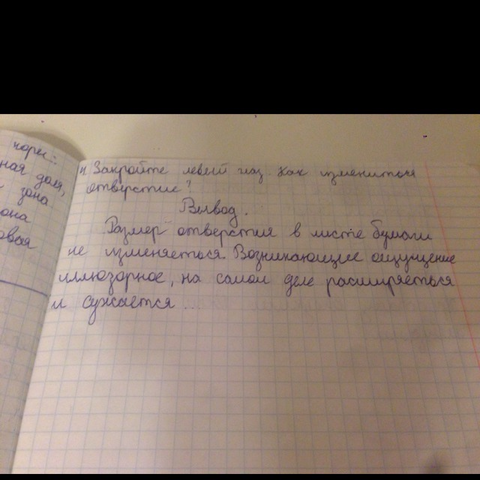 коры:
ная доля,
зона
она
овая
" Закройте левый глаз как измениться
отверстие?
Вывод.
Размер отверстие в листе бумаги
не изменяеться. Возникающее ощущение
иллюзорное, на самом деле расширяеться
и сужается ...